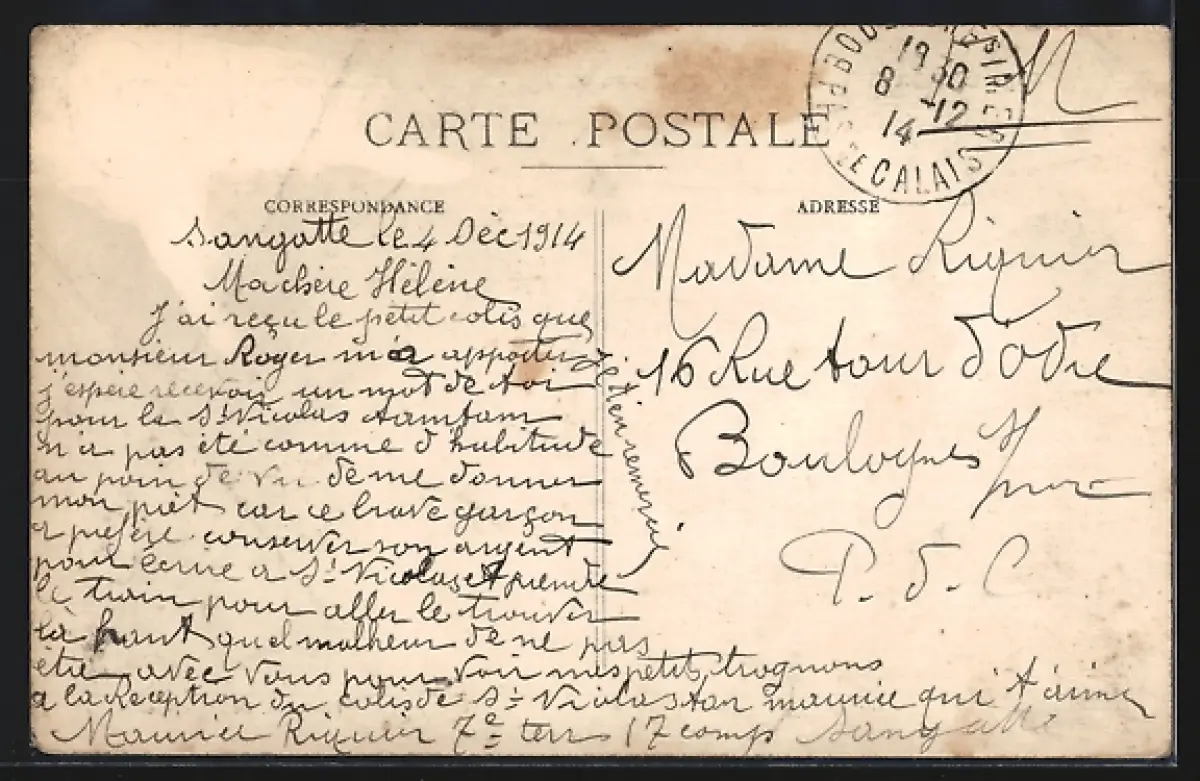 CARTE POSTALE
CORRESPONDANCE
Sangatte le 4 Déc 1914
Ma chère Hélène
J'ai reçu le petit colis que
monsieur Roger m'a apporter
j'espère recevoir un mot de toi
pour la St Nicolas tamtam
n'a pas été comme d'habitude
au poin de vu de me donner
mon pièt car ce brave garçon
a préféré conserver son argent
pour écrire a St Nicolas et prendre
le train pour aller le trouver
là haut quel malheur de ne pas
être avec vous pour voir mes petits trognons
a la Reception du colis de St Nicolas ton maurice qui t'aime
Maurice Riquier 7e terr 17 comp Sangatte
je t'en remercie
ADRESSE
Madame Riquier
16 Rue tour d'Odre
Boulogne s/mer
P. d. C
19 30
8 -12
14
PAS DE CALAIS